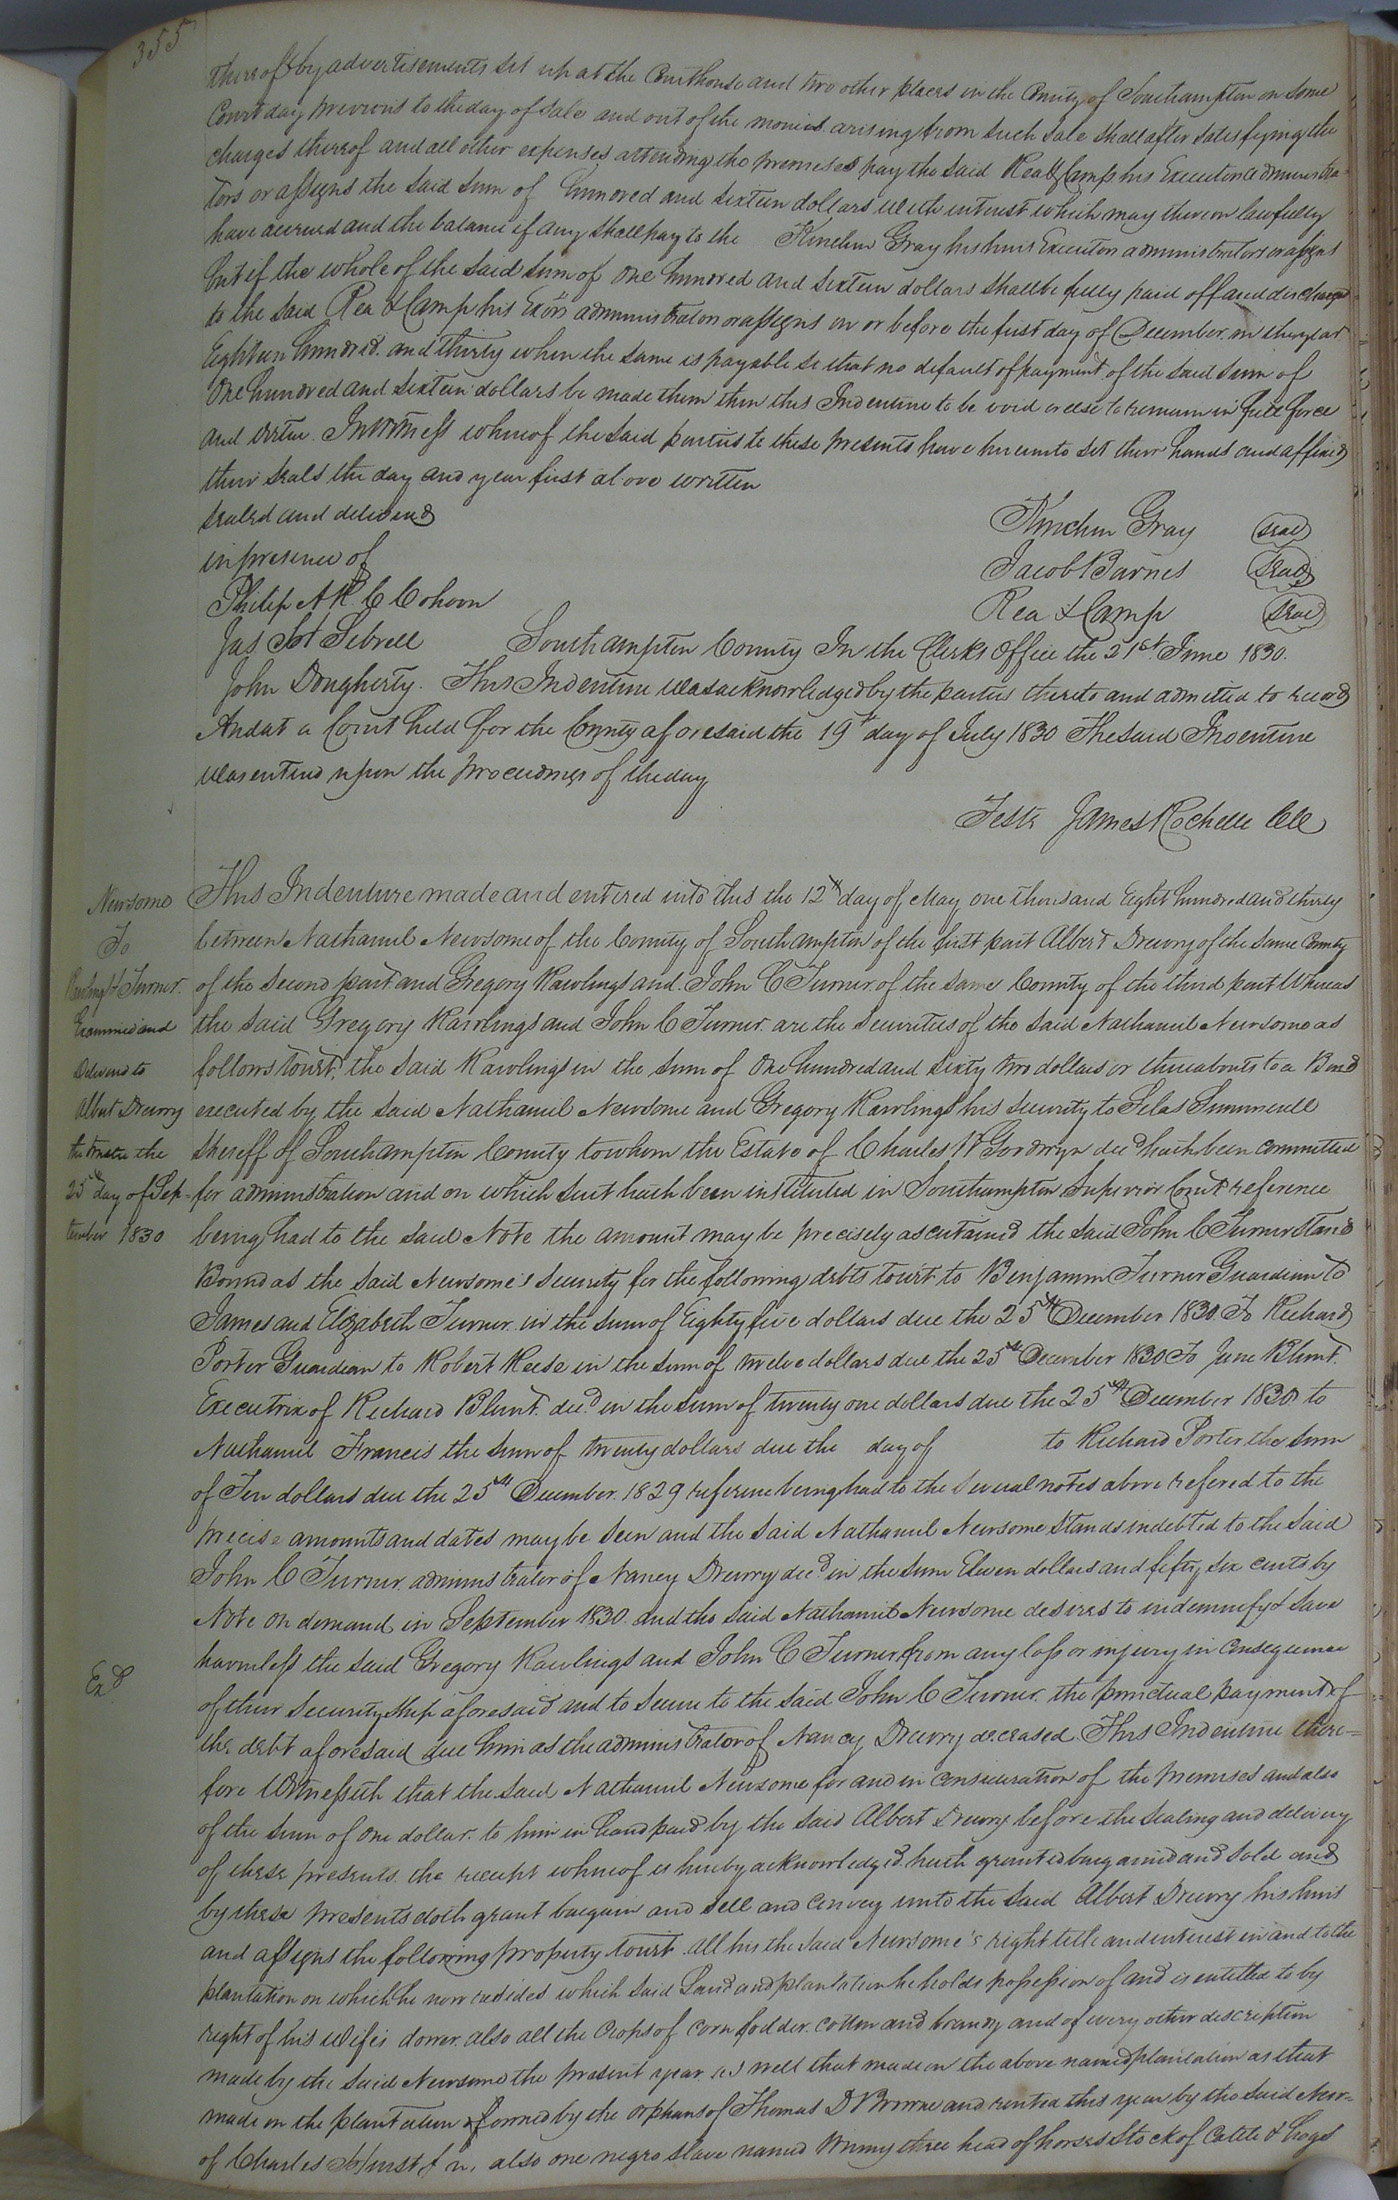 355
thereof by advertisements set up at the Courthouse and two other places in the County of Southampton on some
Court day previous to the day of sale and out of the monies arising from such sale shall after satisfying the
charges thereof and all other expenses attending the premises pay the said Rea & Camp his Executors administra-
tors or assigns the said sum of hundred and sixteen dollars with interest which may thereon lawfully
have accrued and the balance if any shall pay to the Kinchen Gray his heirs Executors administrators or assigns
but if the whole of the said sum of One hundred and sixteen dollars shall be fully paid off and discharged
to the said Rea & Camp his Exors administrators or assigns on or before the first day of December in the year
Eighteen hundred and thirty when the same is payable so that no default of payment of the said sum of
One hundred and sixteen dollars be made them then this Indenture to be void or else to remain in full force
and virtue. In witness whereof the said parties to these presents have hereunto set their hands and affixed
their seals the day and year first above written
sealed and delivered
in presence of
Philip
Jas Sebrell
John Dougherty.
Kinchen Gray (seal)
Jacob Barnes (seal)
Rea & Camp (seal)
Southampton County In the Clerks Office the 21st June 1830.
This Indenture was acknowledged by the parties thereto and admitted to record
And at a Court held for the County aforesaid the 19th day of July 1830 The said Indenture
was entered upon the proceedings of the day
Teste James Rochelle CC
Newsome
To
Rawlings & Turner.
Examined and
Delivered to
Albert Drewry
the trustee the
25th day of Sep-
tember 1830
Exd
This Indenture made and entered into this the 12th day of May one thousand Eight hundred and thirty
between Nathaniel Newsome of the County of Southampton of the first part Albert Drewry of the same County
of the second part and Gregory Rawlings and John C Turner of the same County of the third part Whereas
the said Gregory Rawlings and John C Turner are the securities of the said Nathaniel Newsome as
follows towit, the said Rawlings in the sum of One hundred and sixty two dollars or thereabouts to a Bond
executed by the said Nathaniel Newsome and Gregory Rawlings his security to Silas Summerell
Shereff of Southampton County to whom the Estate of Charles Goodwyn decd hath been committed
for administration and on which suit hath been instituted in Southampton Superior Court reference
being had to the said Note the amount may be precisely ascertained the said John C Turner stand
Bound as the said Newsome's security for the following debts towit to Benjamin Turner Guardian to
James and Elizabeth Turner in the sum of Eighty five dollars due the 25th December 1830 To Richard
Porter Guardian to Robert Reese in the sum of twelve dollars due the 25th December 1830 To Jane Blunt.
Executrix of Richard Blunt. decd in the sum of twenty one dollars due the 25th December 1830 to
Nathaniel Francis the sum of twenty dollars due the day of to Richard Porter the sum
of Ten dollars due the 25th December. 1829 reference being had to the several notes above refered to the
precise amounts and dates may be seen and the said Nathaniel Newsome stands indebted to the said
John C Turner administrator of Nancy Drewry decd in the sum Eleven dollars and fifty six cents by
Note on demand in September 1830. and the said Nathaniel Newsome desires to indemnify & save
harmless the said Gregory Rawlings and John C Turner from any loss or injury in consequence
of their security ship aforesaid and to secure to the said John C Turner the punctual payment of
the debt aforesaid due him as the administrator of Nancy Drewry deceased. This Indenture there=
fore Witnesseth that the said Nathaniel Newsome for and in consideration of the premises and also
of the sum of one dollar to him in hand paid by the said Albert Drewry before the sealing and delivery
of these presents the receipt whereof is hereby acknowledged hath granted bargained and sold and
by these presents doth grant bargain and sell and convey unto the said Albert Drewry his heirs
and assigns the following property towit all his the said Newsome's right title and interest in and to the
plantation on which he now resides which said Land and plantation he holds possession of and is entitled to by
right of his wife's dower. also all the crops of corn fodder cotton and brandy and of every other description
made by the said Newsome the present year as well that made on the above named plantation as that
made on the plantation owned by the orphans of Thomas D Browne and rented this year by the said New-
of Charles also one negro slave named three head of horses Stock of Cattle & hogs